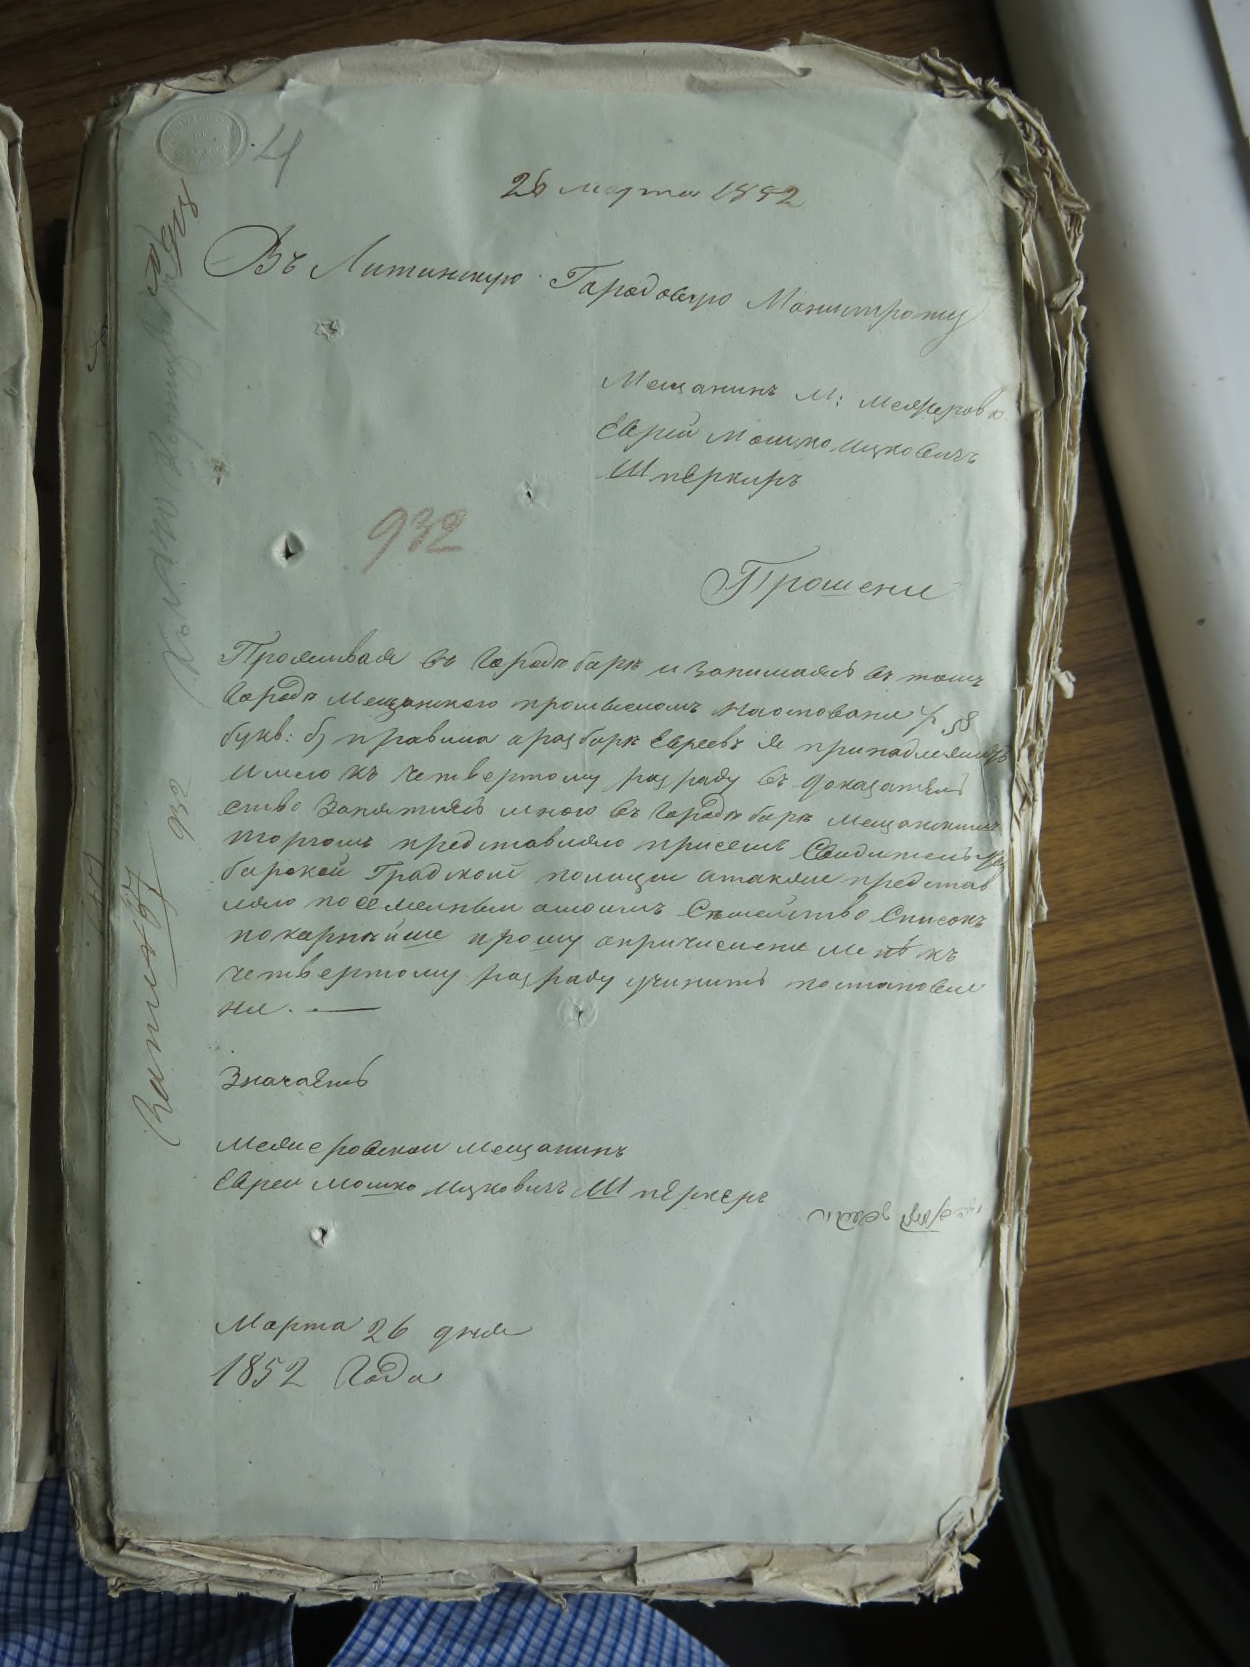 4
26 марта 1852
Въ Литинскую Городовую Магистрату
Мещанинъ М: Межирова
Еврей Мошко Ицковичъ
Шперкиръ
932
Прошение
Проживая въ Городѣ барѣ и занимаясь въ томъ
Городѣ Мещанского промысломъ на основани
букв: б) правила о разборѣ Евреевъ я принадлежать
имею къ четвертому разряду въ доказатель
ство Занятия мною въ Городѣ барѣ мещанскимъ
торгомъ представляю присемъ Свидетельство
барской Градской полиции атакже представ
ляю посемейным омоимъ Семействѣ Списокъ
покарнѣйше прошу опричислени менѣ къ
четвертому разряду учинить постановле
ние. —
Значаетъ
Межеровскои мещанинъ
Еврей мошко Ицковичъ Шперкеръ
Марта 26 дня
1852 Года
932